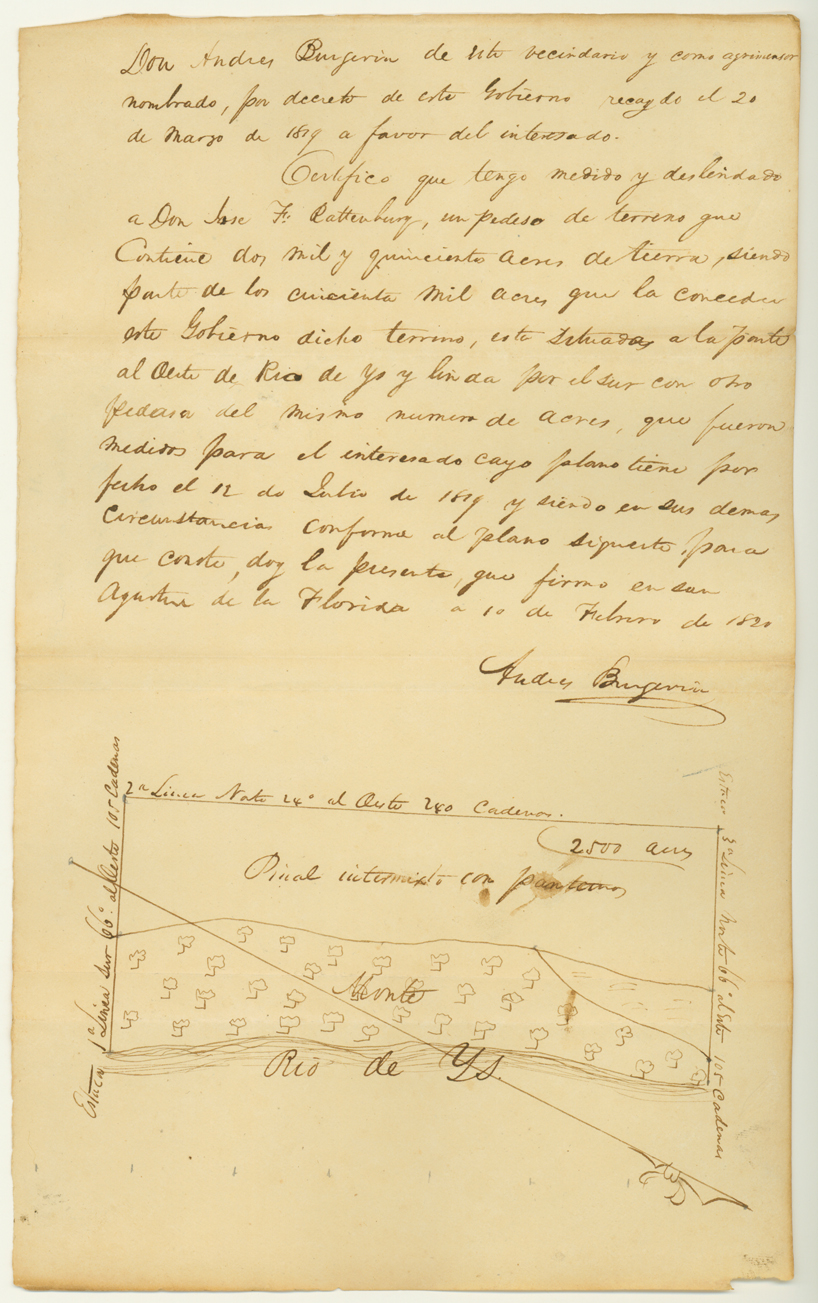 Don Andres Burgevin de este vecindario y como agrimensor
nombrado, por decreto de este Gobierno recaydo el 20
de Marzo de 1819 a favor del interesado.
Certifico que tengo medido y deslindado
a Don Jose F. Rattenbury, un pedeso de terreno que
Contiene dos mil y quiniento acres de tierra, siendo
parte de los cincienta mil acres que la concedia
este Gobierno dicho terreno, esta situado a la parte
al Oeste de Rio de Ys y linda por el sur con otro
pedasa del mismo numero de acres, que fueron
medidos para el interesado cayo plano tiene por
fecho el 12 do Julio de 1819 y siendo en sus demas
circunstancias conforme al plano siguente, para
que conste, doy la presente, que firmo en san
Agustin de la Florida a 10 de Febrero de 1820
Andres Burgevin
2a Linea Norte 24° al Oeste 240 Cadenas.
2500 acres
Pinal intermixto con
1a Linea Sur 66° al Oeste 105 Cadenas
Estaca
Estaca
3a Linea Norte 66° al Este 105 Cadenas
Monte
Rio de Ys.